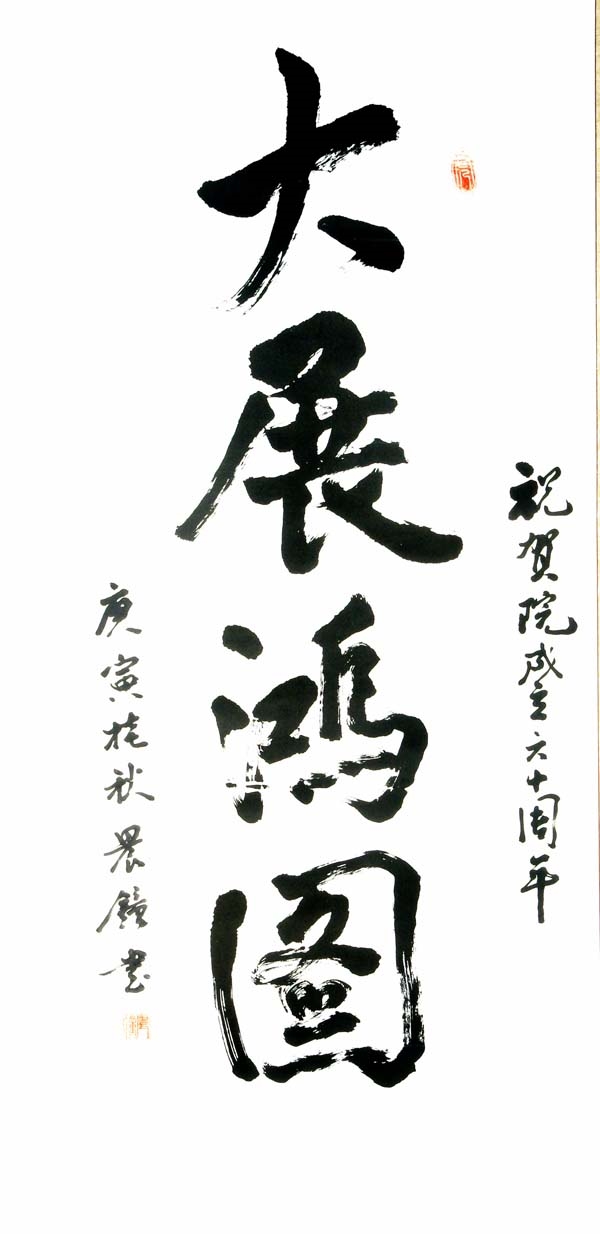 祝贺院成立六十周年
大展鸿图
庚寅桂秋晨镜书